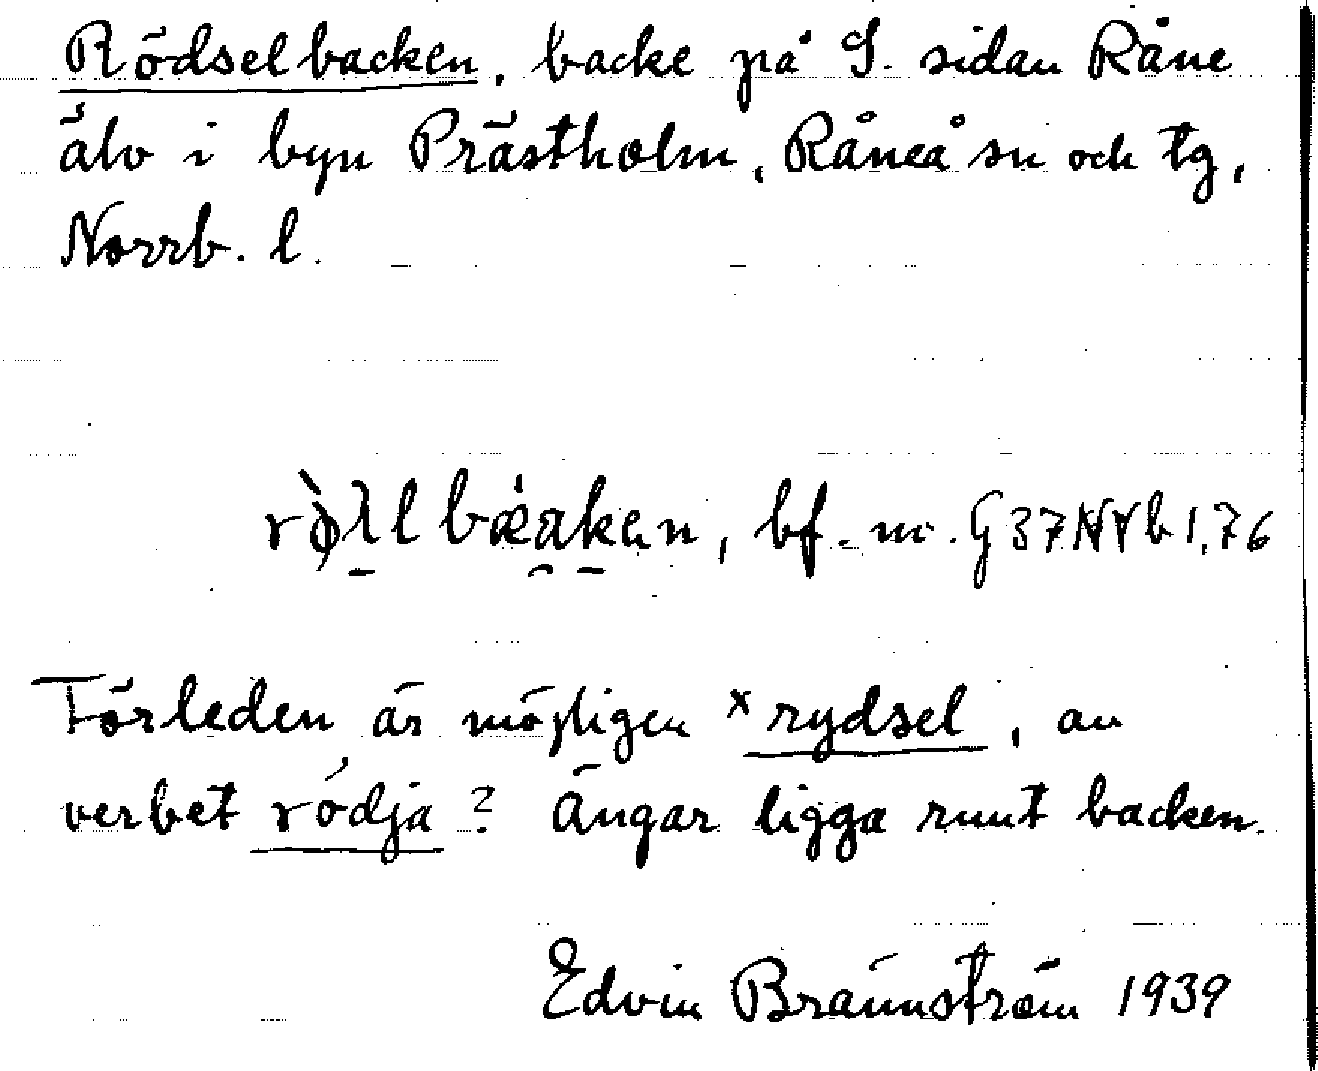 Rödselbacken, backe på S. sidan Råne
älv i byn Prästholm, Råneå sn och tg,
Norrb. l.
bf. m. G37NVb1,76
Förleden är möjligen ˣrydsel, av
verbet rödja? Ängar ligga runt backen.
Edvin Brännström 1939